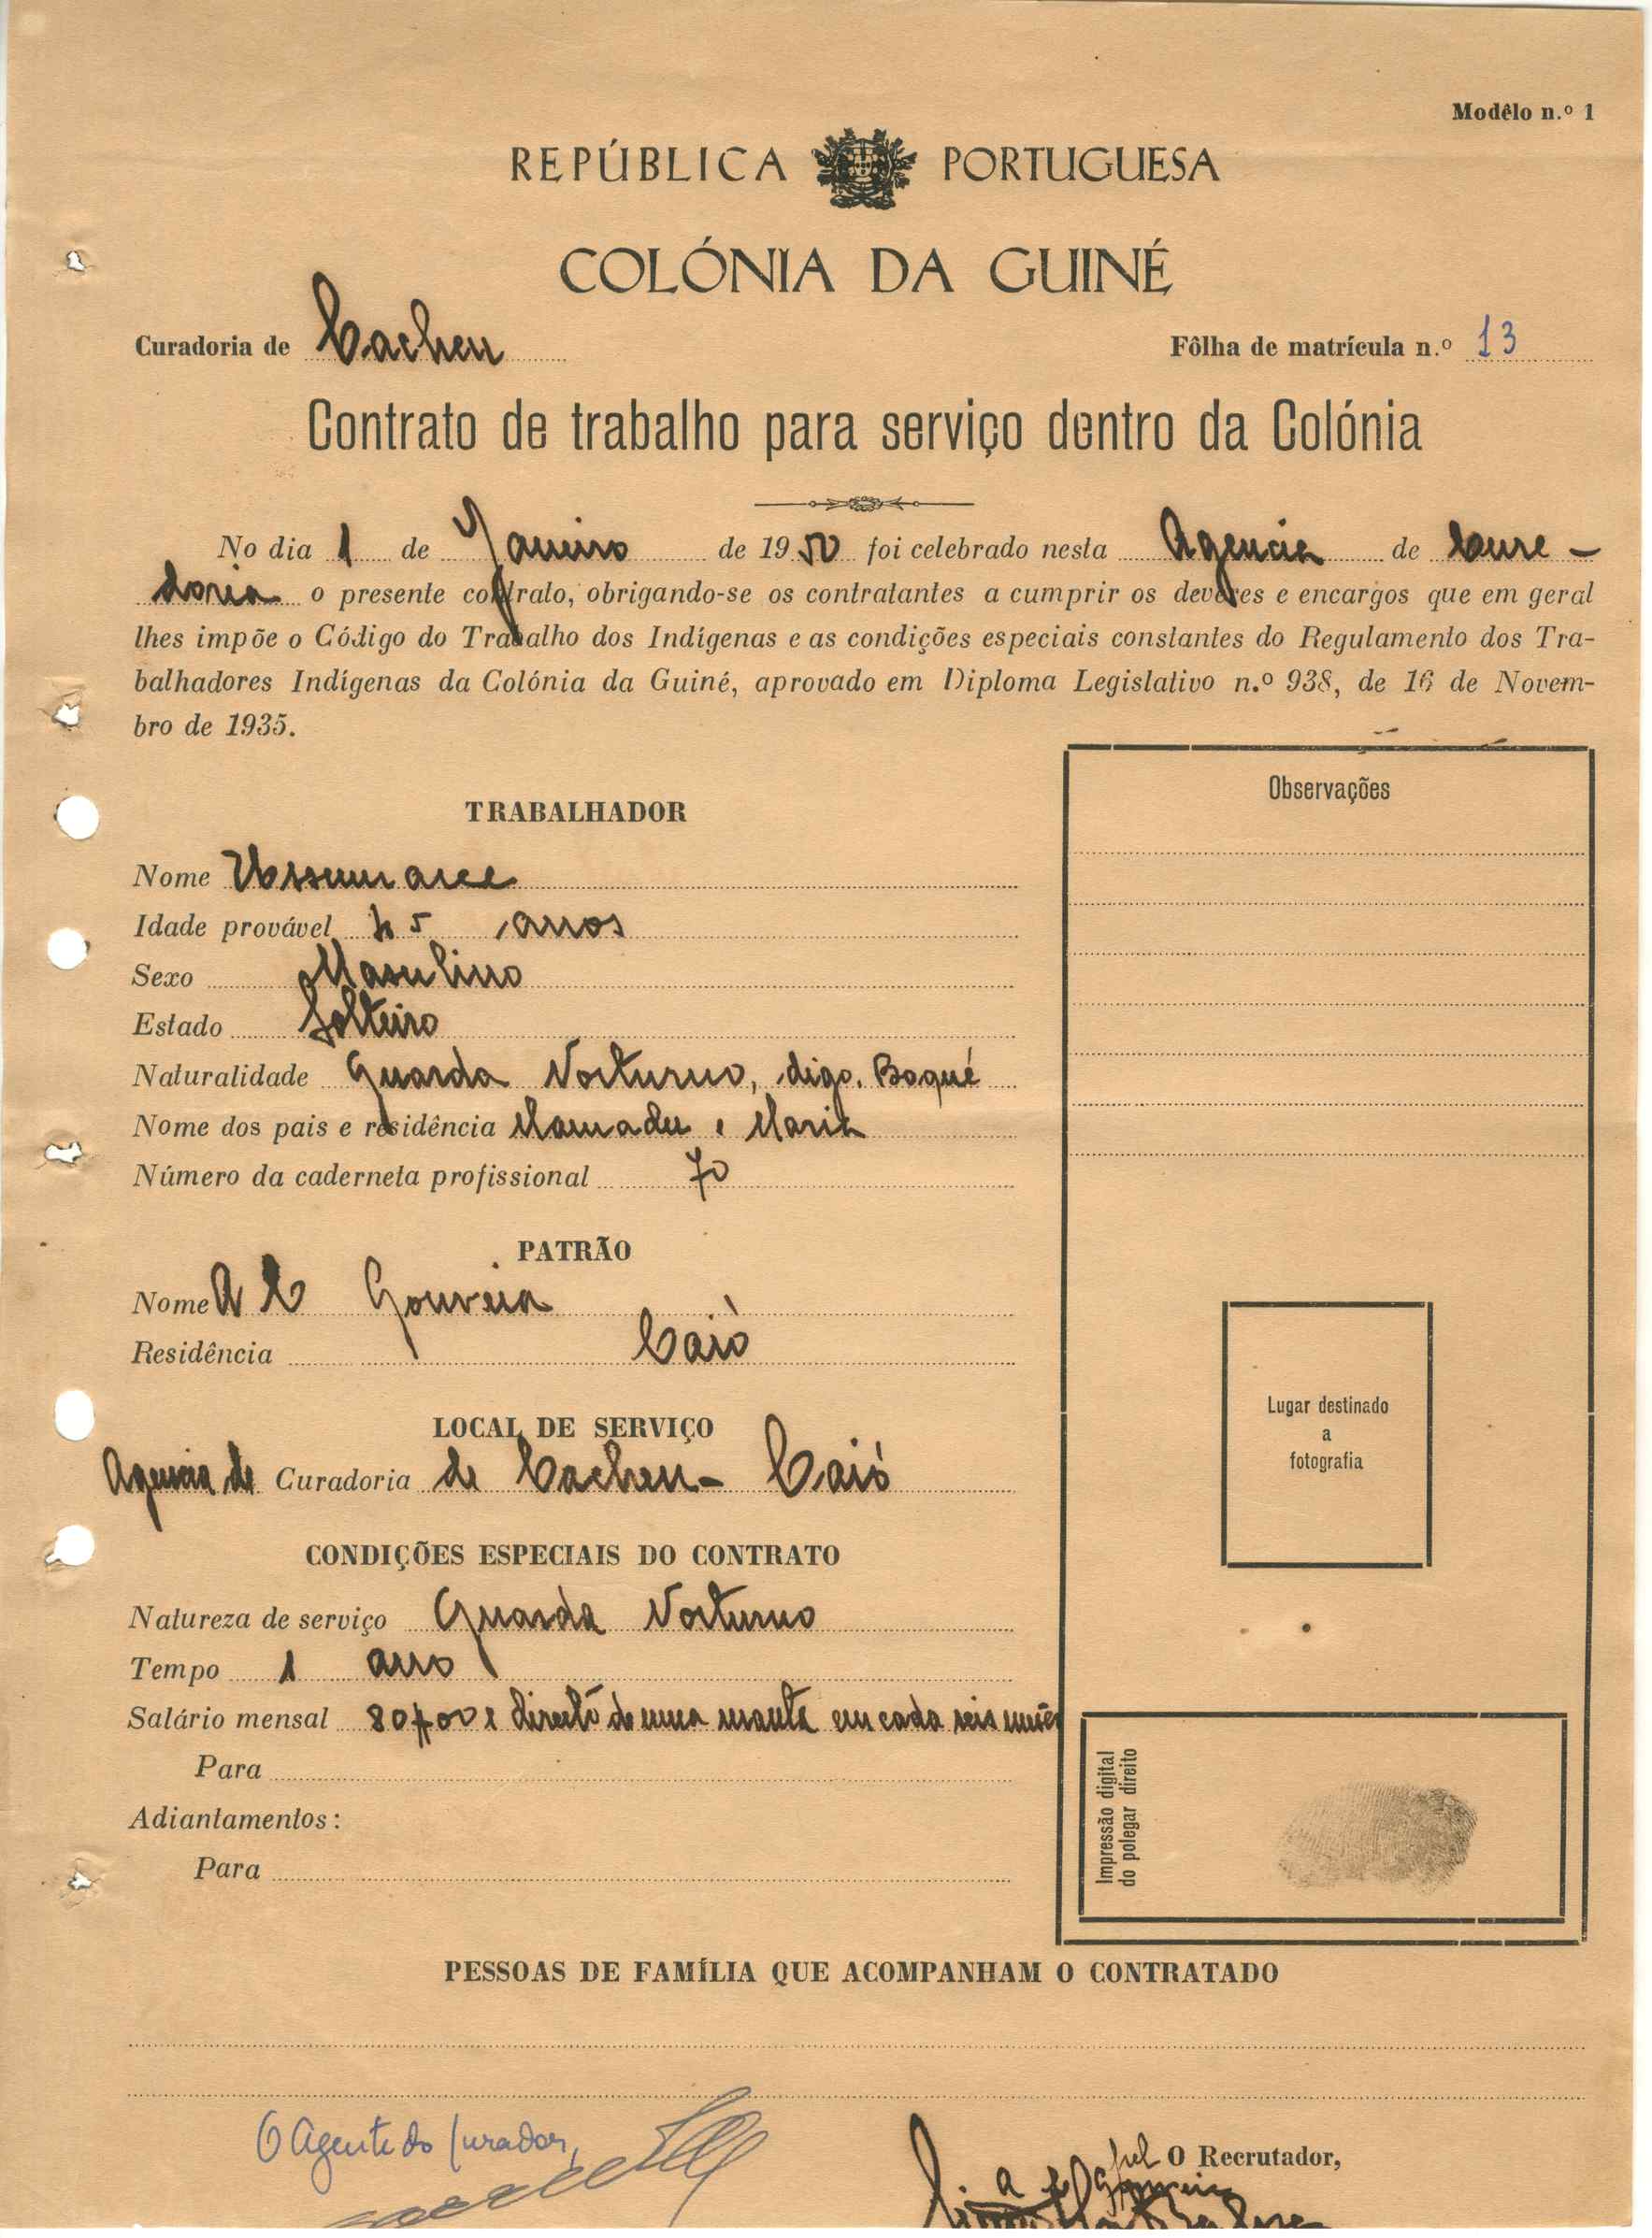 Modêlo n.º 1
REPÚBLICA PORTUGUESA
COLÓNIA DA GUINÉ
Curadoria de Cacheu Fôlha de matrícula n.º 13
Contrato de trabalho para serviço dentro da Colónia
No dia 1 de Janeiro de 1950 foi celebrado nesta Agencia de Cura-
doria o presente contrato, obrigando-se os contratantes a cumprir os deveres e encargos que em geral
lhes impõe o Código do Trabalho dos Indígenas e as condições especiais constantes do Regulamento dos Tra-
balhadores Indígenas da Colónia da Guiné, aprovado em Diploma Legislativo n.º 938, de 16 de Novem-
bro de 1935.
Observações
TRABALHADOR
Nome
Idade provável 45 anos
Sexo Masculino
Estado Solteiro
Naturalidade Guarda Nocturno, digo, Boqué
Nome dos pais e residência Mamadu e Maria
Número da caderneta profissional 70
PATRÃO
Nome A C Gouveia
Residência Caiò
LOCAL DE SERVIÇO
Agencia de Curadoria de Cacheu - Caiò
Lugar destinado
a
fotografia
CONDIÇÕES ESPECIAIS DO CONTRATO
Natureza de serviço Guarda Nocturno
Tempo 1 ano
Salário mensal 80$00 e direito de uma manta em cada seis mêses
Para
Adiantamentos:
Para
Impressão digital
do polegar direito
PESSOAS DE FAMÍLIA QUE ACOMPANHAM O CONTRATADO
O Agente do Curador,
O Recrutador,